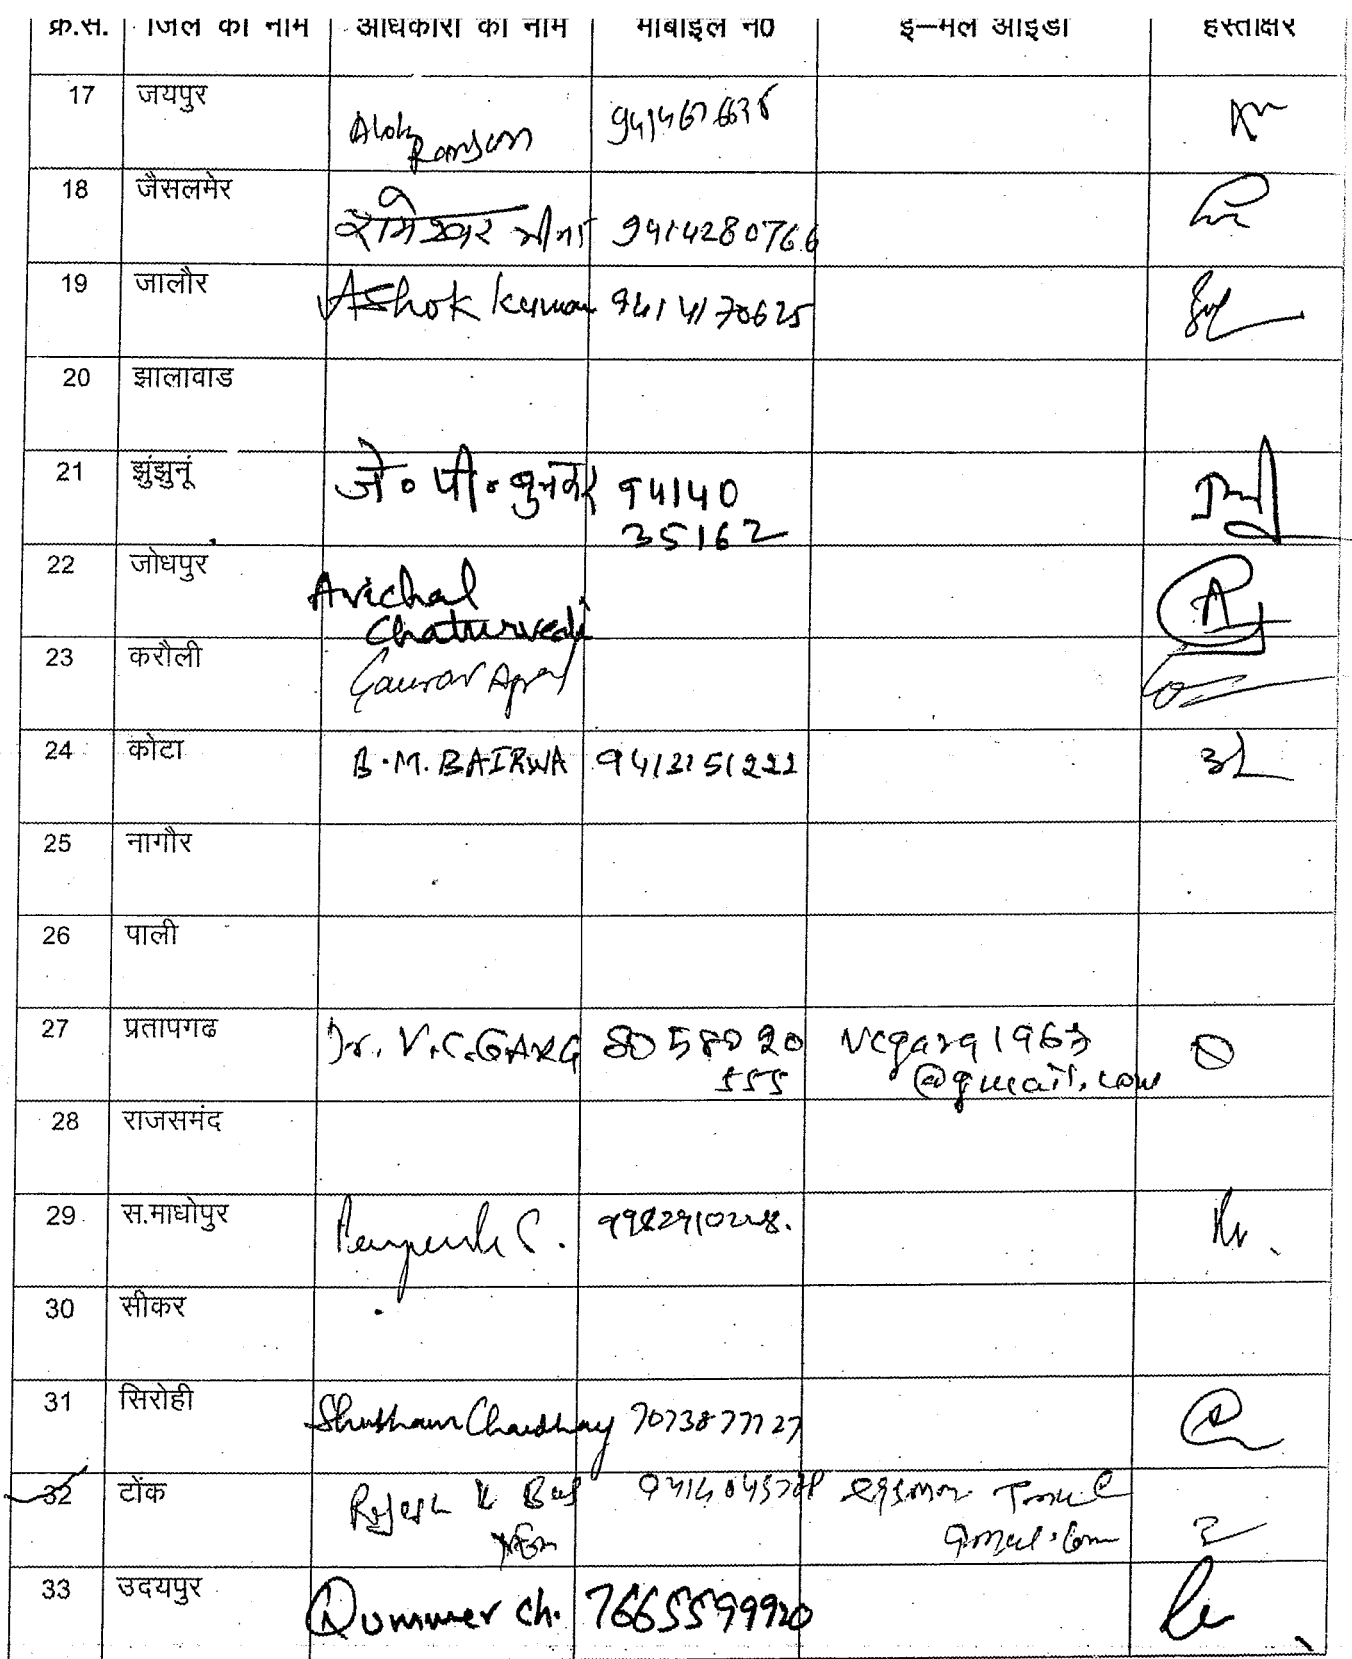 क्र.स. जिले का नाम अधिकारी का नाम मोबाईल न0 ई–मेल आईडी हस्ताक्षर
17 जयपुर
Alok
Ranjan
18 जैसलमेर
रामेश्वर मीना 9414280766
19 जालौर
Ashok Kumar 9414170625
20 झालावाड
21 झुंझुनूं
जे० पी० बुनकर 94140
35162
22 जोधपुर
Avichal
Chaturvedi
23 करौली
Gaurav
24 कोटा
B.M. BAIRWA 9413151222
25 नागौर
26 पाली
27 प्रतापगढ
Dr. V.C. GARG 8058020 vcgarg1963
555 @gmail.com
28 राजसमंद
29 स.माधोपुर
30 सीकर
31 सिरोही
Shubham Chaudhary 7073877727
32 टोंक
Rajesh K
33 उदयपुर
Qummer ch. 7665599920